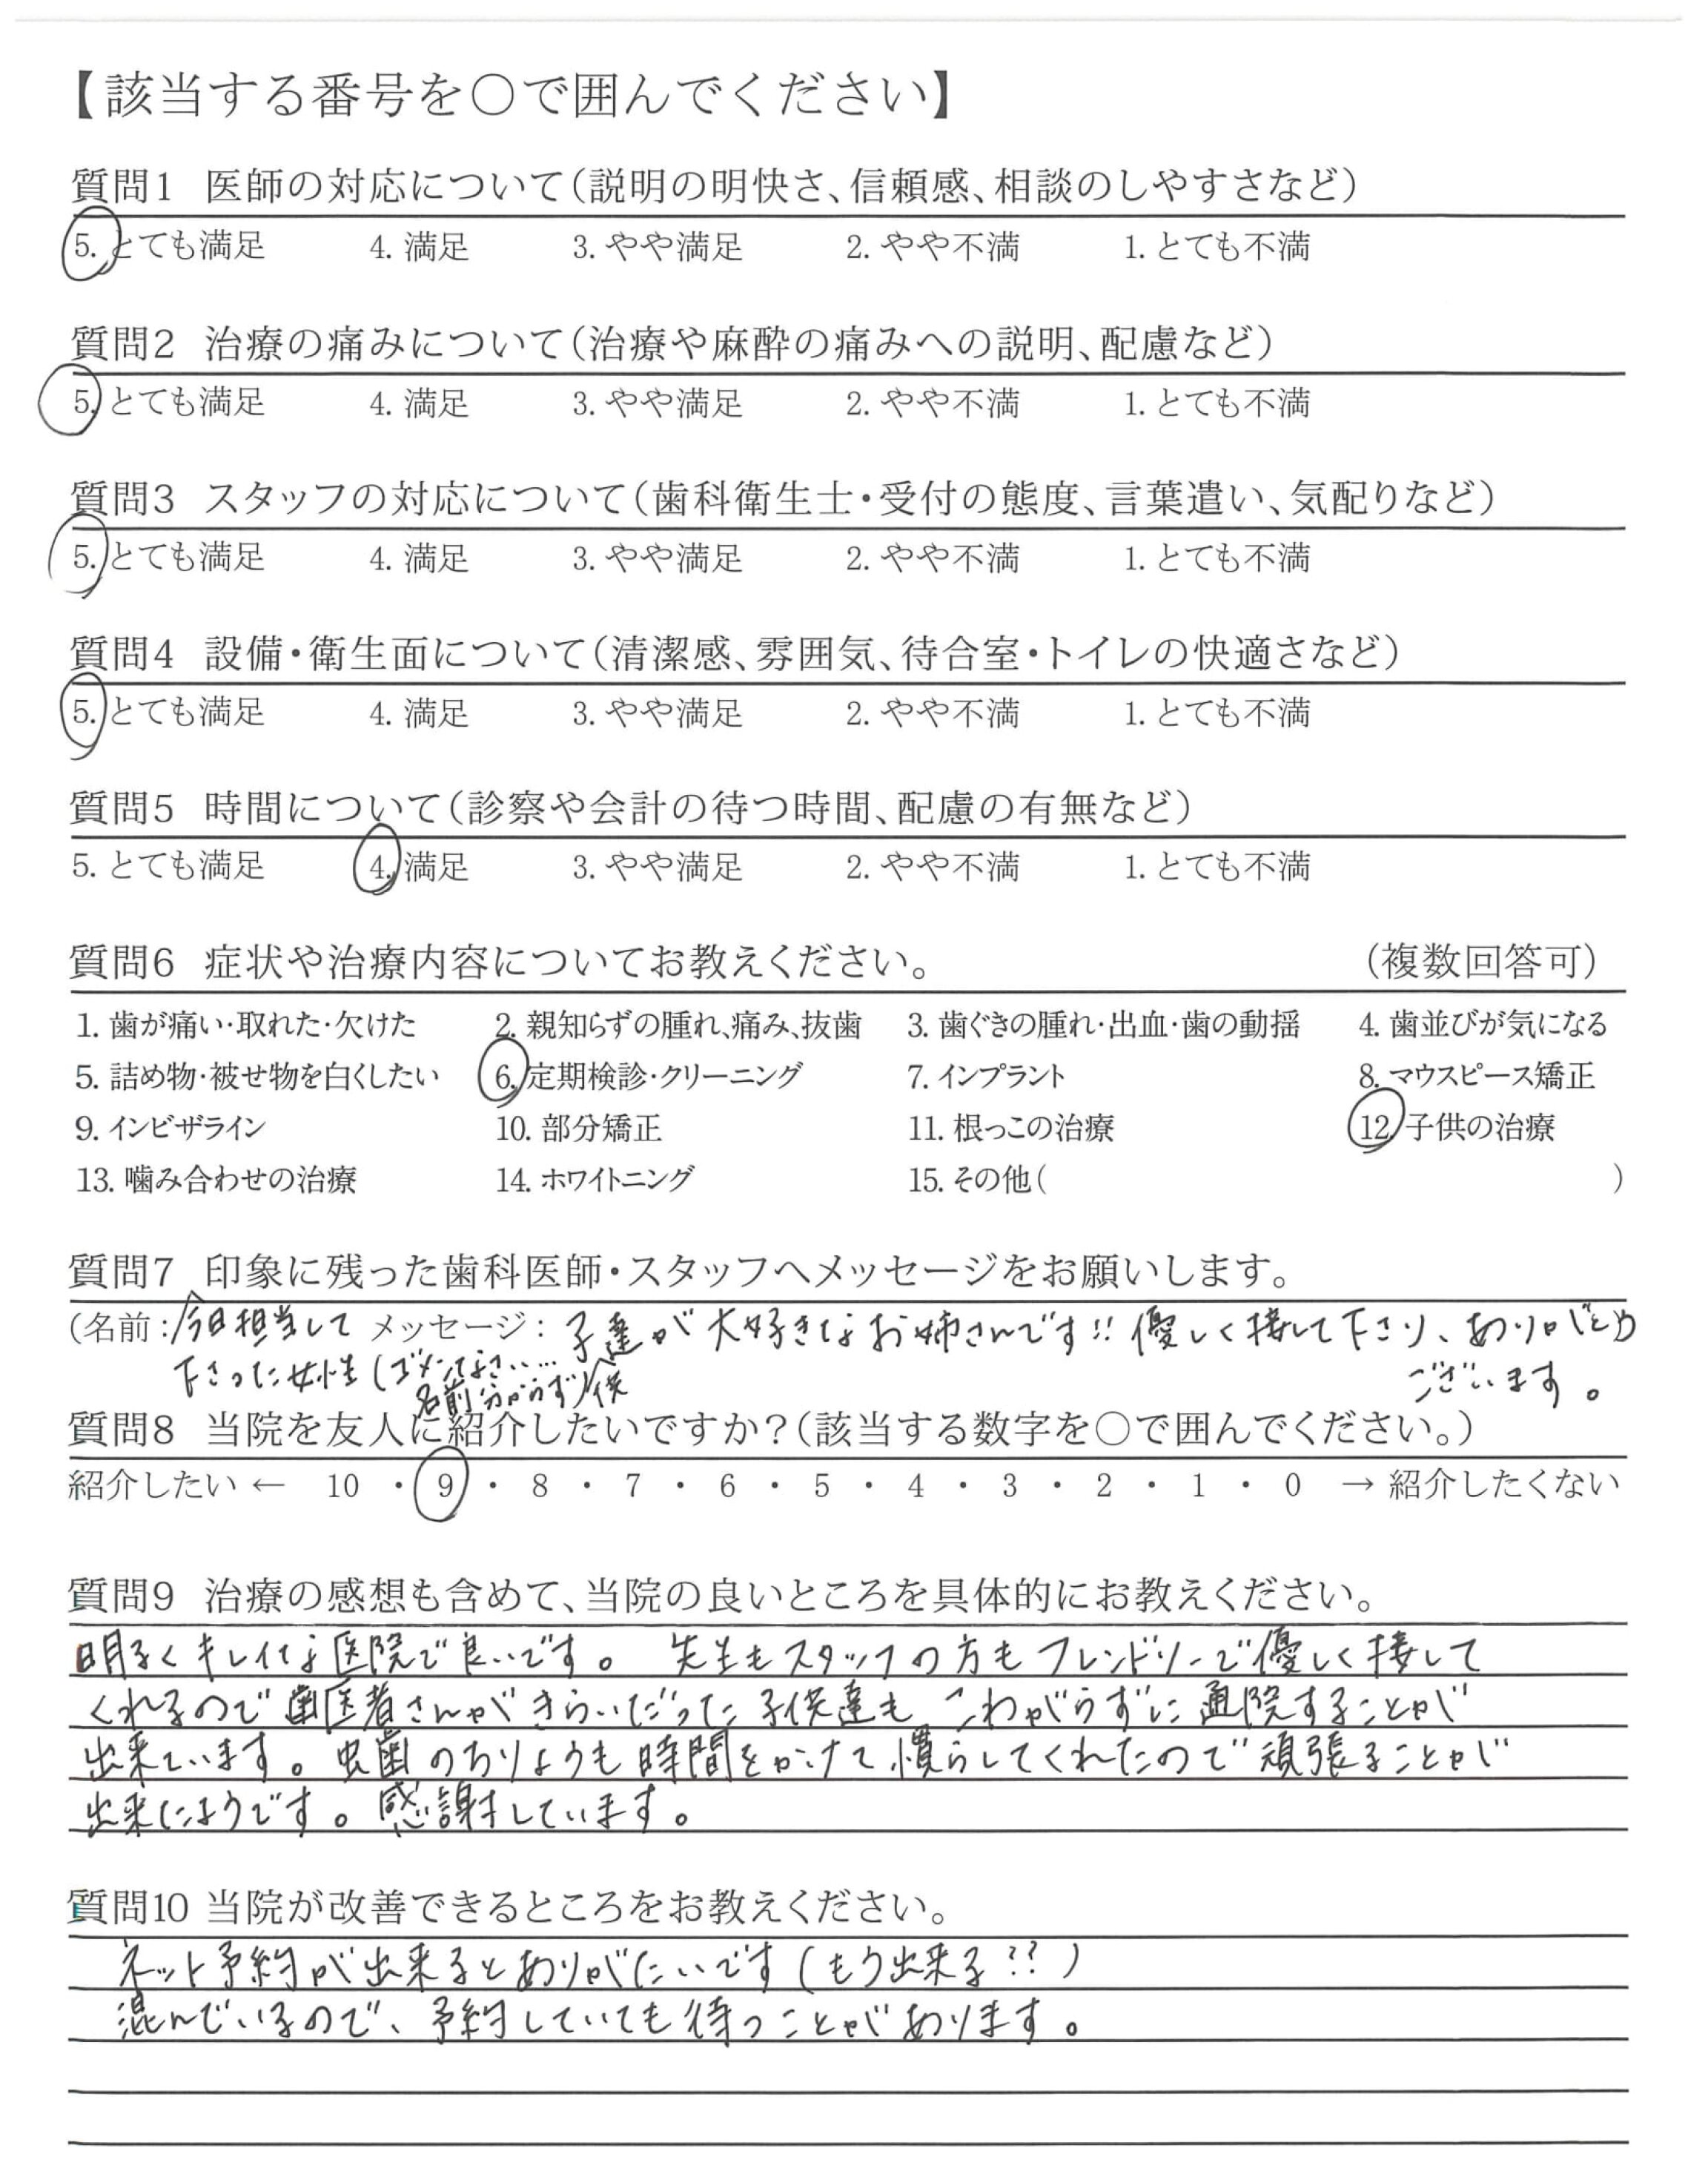 【該当する番号を〇で囲んでください】
質問1 医師の対応について(説明の明快さ、信頼感、相談のしやすさなど)
5. とても満足 4. 満足 3. やや満足 2. やや不満 1. とても不満
質問2 治療の痛みについて(治療や麻酔の痛みへの説明、配慮など)
5. とても満足 4. 満足 3. やや満足 2. やや不満 1. とても不満
質問3 スタッフの対応について(歯科衛生士・受付の態度、言葉遣い、気配りなど)
5. とても満足 4. 満足 3. やや満足 2. やや不満 1. とても不満
質問4 設備・衛生面について(清潔感、雰囲気、待合室・トイレの快適さなど)
5. とても満足 4. 満足 3. やや満足 2. やや不満 1. とても不満
質問5 時間について(診察や会計の待つ時間、配慮の有無など)
5. とても満足 4. 満足 3. やや満足 2. やや不満 1. とても不満
質問6 症状や治療内容についてお教えください。 (複数回答可)
1. 歯が痛い・取れた・欠けた 2. 親知らずの腫れ、痛み、抜歯 3. 歯ぐきの腫れ・出血・歯の動揺 4. 歯並びが気になる
5. 詰め物・被せ物を白くしたい 6. 定期検診・クリーニング 7. インプラント 8. マウスピース矯正
9. インビザライン 10. 部分矯正 11. 根っこの治療 12. 子供の治療
13. 噛み合わせの治療 14. ホワイトニング 15. その他( )
質問7 印象に残った歯科医師・スタッフへメッセージをお願いします。
(名前:今日担当して メッセージ: 子達が大好きなお姉さんです!! 優しく接して下さり、ありがとう
下さった女性(ゴメンなさい… 供 ございます。
名前分からず)
質問8 当院を友人に紹介したいですか?(該当する数字を〇で囲んでください。)
紹介したい ← 10 ・ 9 ・ 8 ・ 7 ・ 6 ・ 5 ・ 4 ・ 3 ・ 2 ・ 1 ・ 0 → 紹介したくない
質問9 治療の感想も含めて、当院の良いところを具体的にお教えください。
明るくキレイな医院で良いです。 先生もスタッフの方もフレンドリーで優しく接して
くれるので歯医者さんがきらいだった子供達もこわがらずに通院することが
出来ています。虫歯のちりょうも時間をかけて慣らしてくれたので頑張ることが
出来たようです。感謝しています。
質問10 当院が改善できるところをお教えください。
ネット予約が出来るとありがたいです(もう出来る??)
混んでいるので、予約していても待つことがあります。